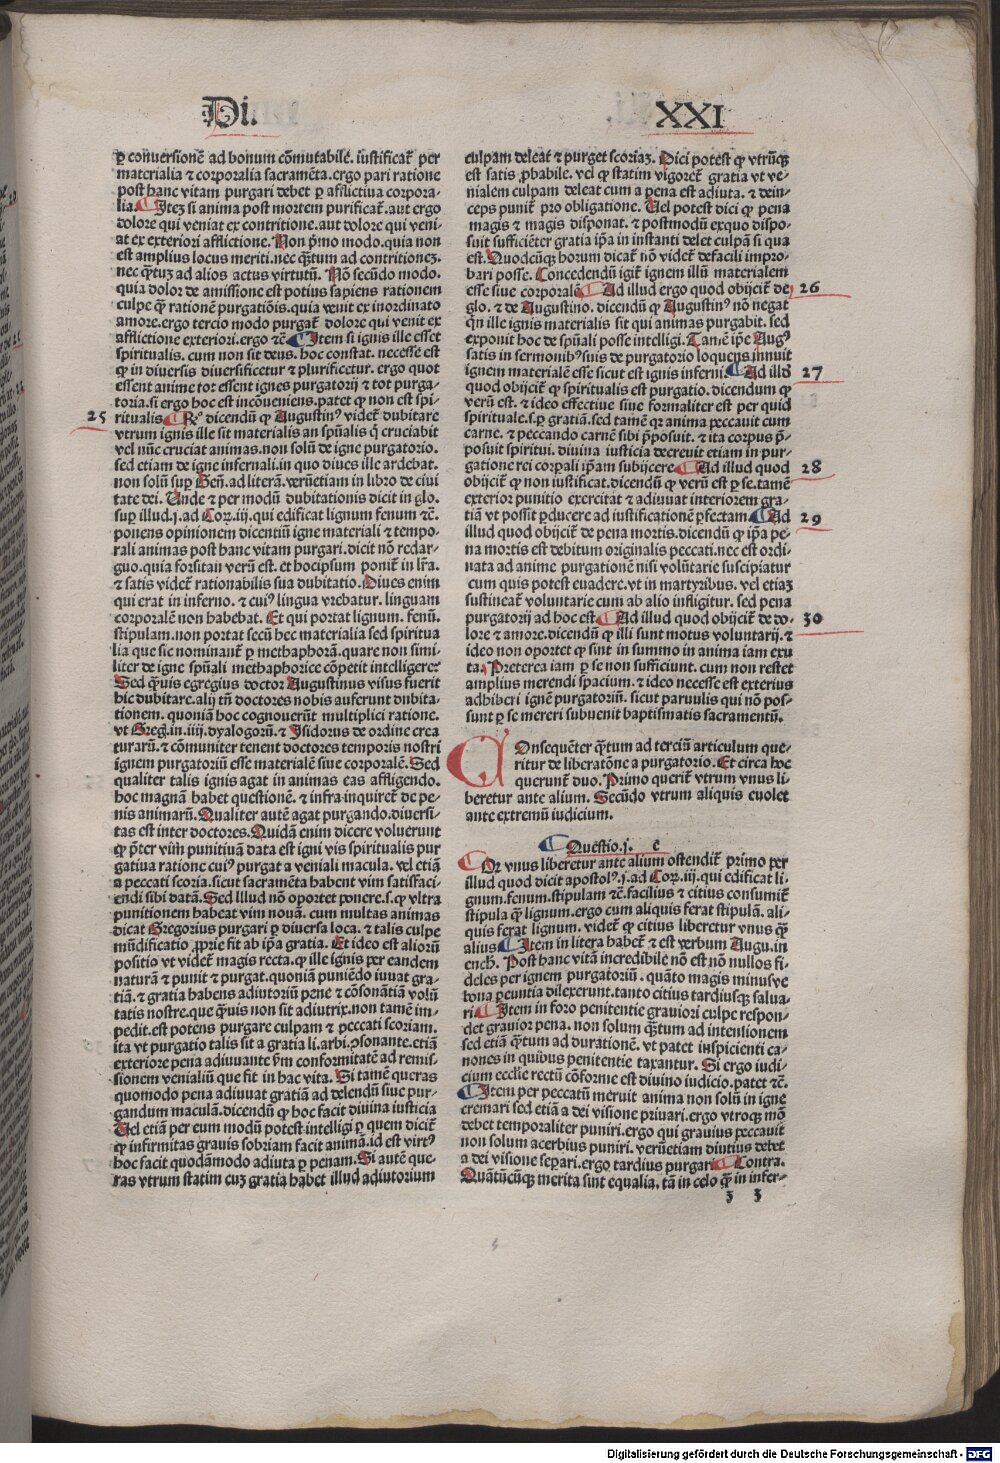 Di.
XXI
ꝑ conuersionē ad bonum cōmutabile. iustificat᷑ per
materialia ⁊ corporalia sacramēta. ergo pari ratione
post hanc vitam purgari debet ꝑ afflictiua corpora-
lia. ¶ Itez si anima post mortem purificat᷑. aut ergo
dolore qui veniat ex contritione. aut dolore qui veni-
at ex exteriori afflictione. Non pͥmo modo. quia non
est amplius locus meriti. nec q̄tum ad contritionez.
nec q̄tuz ad alios actus virtutū. Nō secūdo modo.
quia dolor de amissione est potius sapiens rationem
culpe ꝙ̄ rationē purgatiōis. quia venit ex inordinato
amore. ergo tercio modo purgat᷑ dolore qui venit ex
afflictione exteriori. ergo ⁊c̄ ¶ Item si ignis ille esset
spiritualis. cum non sit deus. hoc constat. necesse est
ꝙ in diuersis diuersificetur ⁊ plurificetur. ergo quot
essent anime tot essent ignes purgatorij ⁊ tot purga-
toria. si ergo hoc est incōueniens. patet ꝙ non est spi-
25 ritualis ¶ R̄ͦ dicendū ꝙ Augustinꝰ videt᷑ dubitare
vtrum ignis ille sit materialis an spūalis q̄ cruciabit
vel nūc cruciat animas. non solū de igne purgatorio.
sed etiam de igne infernali. in quo diues ille ardebat.
non solū suꝑ Gen̄. ad literā. verūetiam in libro de ciui
tate dei. Unde ⁊ per modū dubitationis dicit in glo.
suꝑ illud. j. ad Coꝝ. iij. qui edificat lignum fenum ⁊c̄.
ponens opinionem dicentiū igne materiali ⁊ tempo-
rali animas post hanc vitam purgari. dicit nō redar-
guo. quia forsitan verū est. et hocipsum ponit᷑ in lr̄a.
⁊ satis videt᷑ rationabilis sua dubitatio. Diues enim
qui erat in inferno. ⁊ cuiꝰ lingua vrebatur. linguam
corporalē non habebat. Et qui portat lignum. fenū.
stipulam. non portat secū hec materialia sed spiritua
lia que sic nominant᷑ ꝑ methaphorā. quare non simi-
liter de igne spūali methaphorice cōpetit intelligere?
Sed q̄uis egregius doctor Augustinus visus fuerit
hic dubitare. alij tn̄ doctores nobis auferunt dubita-
tionem. quoniā hoc cognouerūt multiplici ratione.
vt Greḡ. in. iiij. dyalogorū. ⁊ Isidorus de ordine crea
turarū. ⁊ cōmuniter tenent doctores temporis nostri
ignem purgatoriū esse materialē siue corporalē. Sed
qualiter talis ignis agat in animas eas affligendo.
hoc magnā habet questionē. ⁊ infra inquiret᷑ de pe-
nis animarū. Qualiter autē agat purgando. diuersi-
tas est inter doctores. Quidā enim dicere voluerunt
ꝙ p̄ter vim punitiuā data est igni vis spiritualis pur
gatiua ratione cuiꝰ purgat a veniali macula. vel etiā
a peccati scoria. sicut sacramēta habent vim satisfaci-
endi sibi datā. Sed Illud nō oportet ponere. s. ꝙ vltra
punitionem habeat vim nouā. cum multas animas
dicat Gregorius purgari ꝑ diuersa loca. ⁊ talis culpe
mūdificatio ꝓprie fit ab ip̄a gratia. Et ideo est aliorū
positio vt videt᷑ magis recta. ꝙ ille ignis per eandem
naturā ⁊ punit ⁊ purgat. quoniā puniēdo iuuat gra-
tiā. ⁊ gratia habens adiutoriū pene ⁊ cōsonātiā volū
tatis nostre. que q̄uis non sit adiutrix. non tamē im-
pedit. est potens purgare culpam ⁊ peccati scoriam.
ita vt purgatio talis sit a gratia li. arbi. ꝯsonante. etiā
exteriore pena adiuuante ẜm conformitatē ad remis-
sionem venialiū que fit in hac vita. Si tamē queras
quomodo pena adiuuat gratiā ad delendū siue pur-
gandum maculā. dicendū ꝙ hoc facit diuina iusticia
Uel etiā per eum modū potest intelligi ꝑ quem dicit᷑
ꝙ infirmitas grauis sobriam facit animā. id est virtꝰ
hoc facit quodāmodo adiuta ꝑ penam. Si autē que-
ras vtrum statim cuꝫ gratia habet illud adiutorium
culpam deleat ⁊ purget scoriaꝫ. Dici potest ꝙ vtrūqꝫ
est satis ꝓbabile. vel ꝙ statim vigoret᷑ gratia vt ve-
nialem culpam deleat cum a pena est adiuta. ⁊ dein-
ceps punit᷑ pro obligatione. Uel potest dici ꝙ pena
magis ⁊ magis disponat. ⁊ postmodū exquo dispo-
suit sufficiēter gratia ip̄a in instanti delet culpā si qua
est. Quodcūqꝫ horum dicat᷑ nō videt᷑ defacili impro-
bari posse. Concedendū igit᷑ ignem illū materialem
esse siue corporalē ¶ Ad illud ergo quod obijcit᷑ de 26
glo. ⁊ de Augustino. dicendū ꝙ Augustinꝰ nō negat
qͥn ille ignis materialis sit qui animas purgabit. sed
exponit hoc de spūali posse intelligi. Tamē ip̄e Augꝰ
satis in sermonibꝰ suis de purgatorio loquens innuit
ignem materialē esse sicut est ignis inferni ¶ Ad illō 27
quod obijcit᷑ ꝙ spiritualis est purgatio. dicendum ꝙ
verū est. ⁊ ideo effectiue siue formaliter est per quid
spirituale. s. ꝑ gratiā. sed tamē qꝛ anima peccauit cum
carne. ⁊ peccando carnē sibi p̄posuit. ⁊ ita corpus p̄-
posuit spiritui. diuina iusticia decreuit etiam in pur-
gatione rei corꝑali ip̄am subijcere ¶ Ad illud quod 28
obijcit᷑ ꝙ non iustificat. dicendū ꝙ verū est ꝑ se. tamē
exterior punitio exercitat ⁊ adiuuat interiorem gra-
tiā vt possit ꝑducere ad iustificationē ꝑfectam ¶ Ad 29
illud quod obijcit᷑ de pena mortis. dicendū ꝙ ip̄a pe-
na mortis est debitum originalis peccati. nec est ordi-
nata ad anime purgationē nisi volūtarie suscipiatur
cum quis potest euadere. vt in martyribus. vel etiaꝫ
sustineat᷑ voluntarie cum ab alio infligitur. sed pena
purgatorij ad hoc est ¶ Ad illud quod obijcit᷑ de do- 30
lore ⁊ amore. dicendū ꝙ illi sunt motus voluntarij. ⁊
ideo non oportet ꝙ sint in summo in anima iam exu
ta. Preterea iam ꝑ se non sufficiunt. cum non restet
amplius merendi spacium. ⁊ ideo necesse est exterius
adhiberi ignē purgatoriū. sicut paruulis qui nō pos-
sunt ꝑ se mereri subuenit baptismatis sacramentū.
COnsequēter q̄tum ad terciū articulum que-
ritur de liberatōne a purgatorio. Et circa hoc
querunt᷑ duo. Primo querit᷑ vtrum vnus li-
beretur ante alium. Secūdo vtrum aliquis euolet
ante extremū iudicium.
¶ Questio. j. e
¶ Or vnus liberetur ante alium ostendit᷑ primo per
illud quod dicit apostolꝰ. j. ad Coꝝ. iij. qui edificat li-
gnum. fenum. stipulam ⁊c̄. facilius ⁊ citius consumit᷑
stipula q̄ lignum. ergo cum aliquis ferat stipulā. ali-
quis ferat lignum. videt᷑ ꝙ citius liberetur vnus q̄
alius ¶ Item in litera habet᷑ ⁊ est verbum Augu. in
ench̄. Post hanc vitā incredibile nō est nō nullos fi-
deles per ignem purgatoriū. quāto magis minusve
bona pereuntia dilexerunt. tanto citius tardiusqꝫ salua-
ri ¶ Item in foro penitentie grauiori culpe respon-
det grauior pena. non solum q̄tum ad intensionem
sed etiā q̄tum ad durationē. vt patet inspicienti ca-
nones in quibus penitentie taxantur. Si ergo iudi-
cium eccl̄ie rectū cōforme est diuino iudicio. patet ⁊c̄.
¶ Item per peccatū meruit anima non solū in igne
cremari sed etiā a dei visione priuari. ergo vtroqꝫ mō
debet temporaliter puniri. ergo qui grauius peccauit
non solum acerbius puniri. verūetiam diutius debet
a dei visione separi. ergo tardius purgari ¶ Contra.
Quātūcūqꝫ merita sint equalia. tā in celo q̄ in infer-
ʒ 3
Digitalisierung gefördert durch die Deutsche Forschungsgemeinschaft - DFG